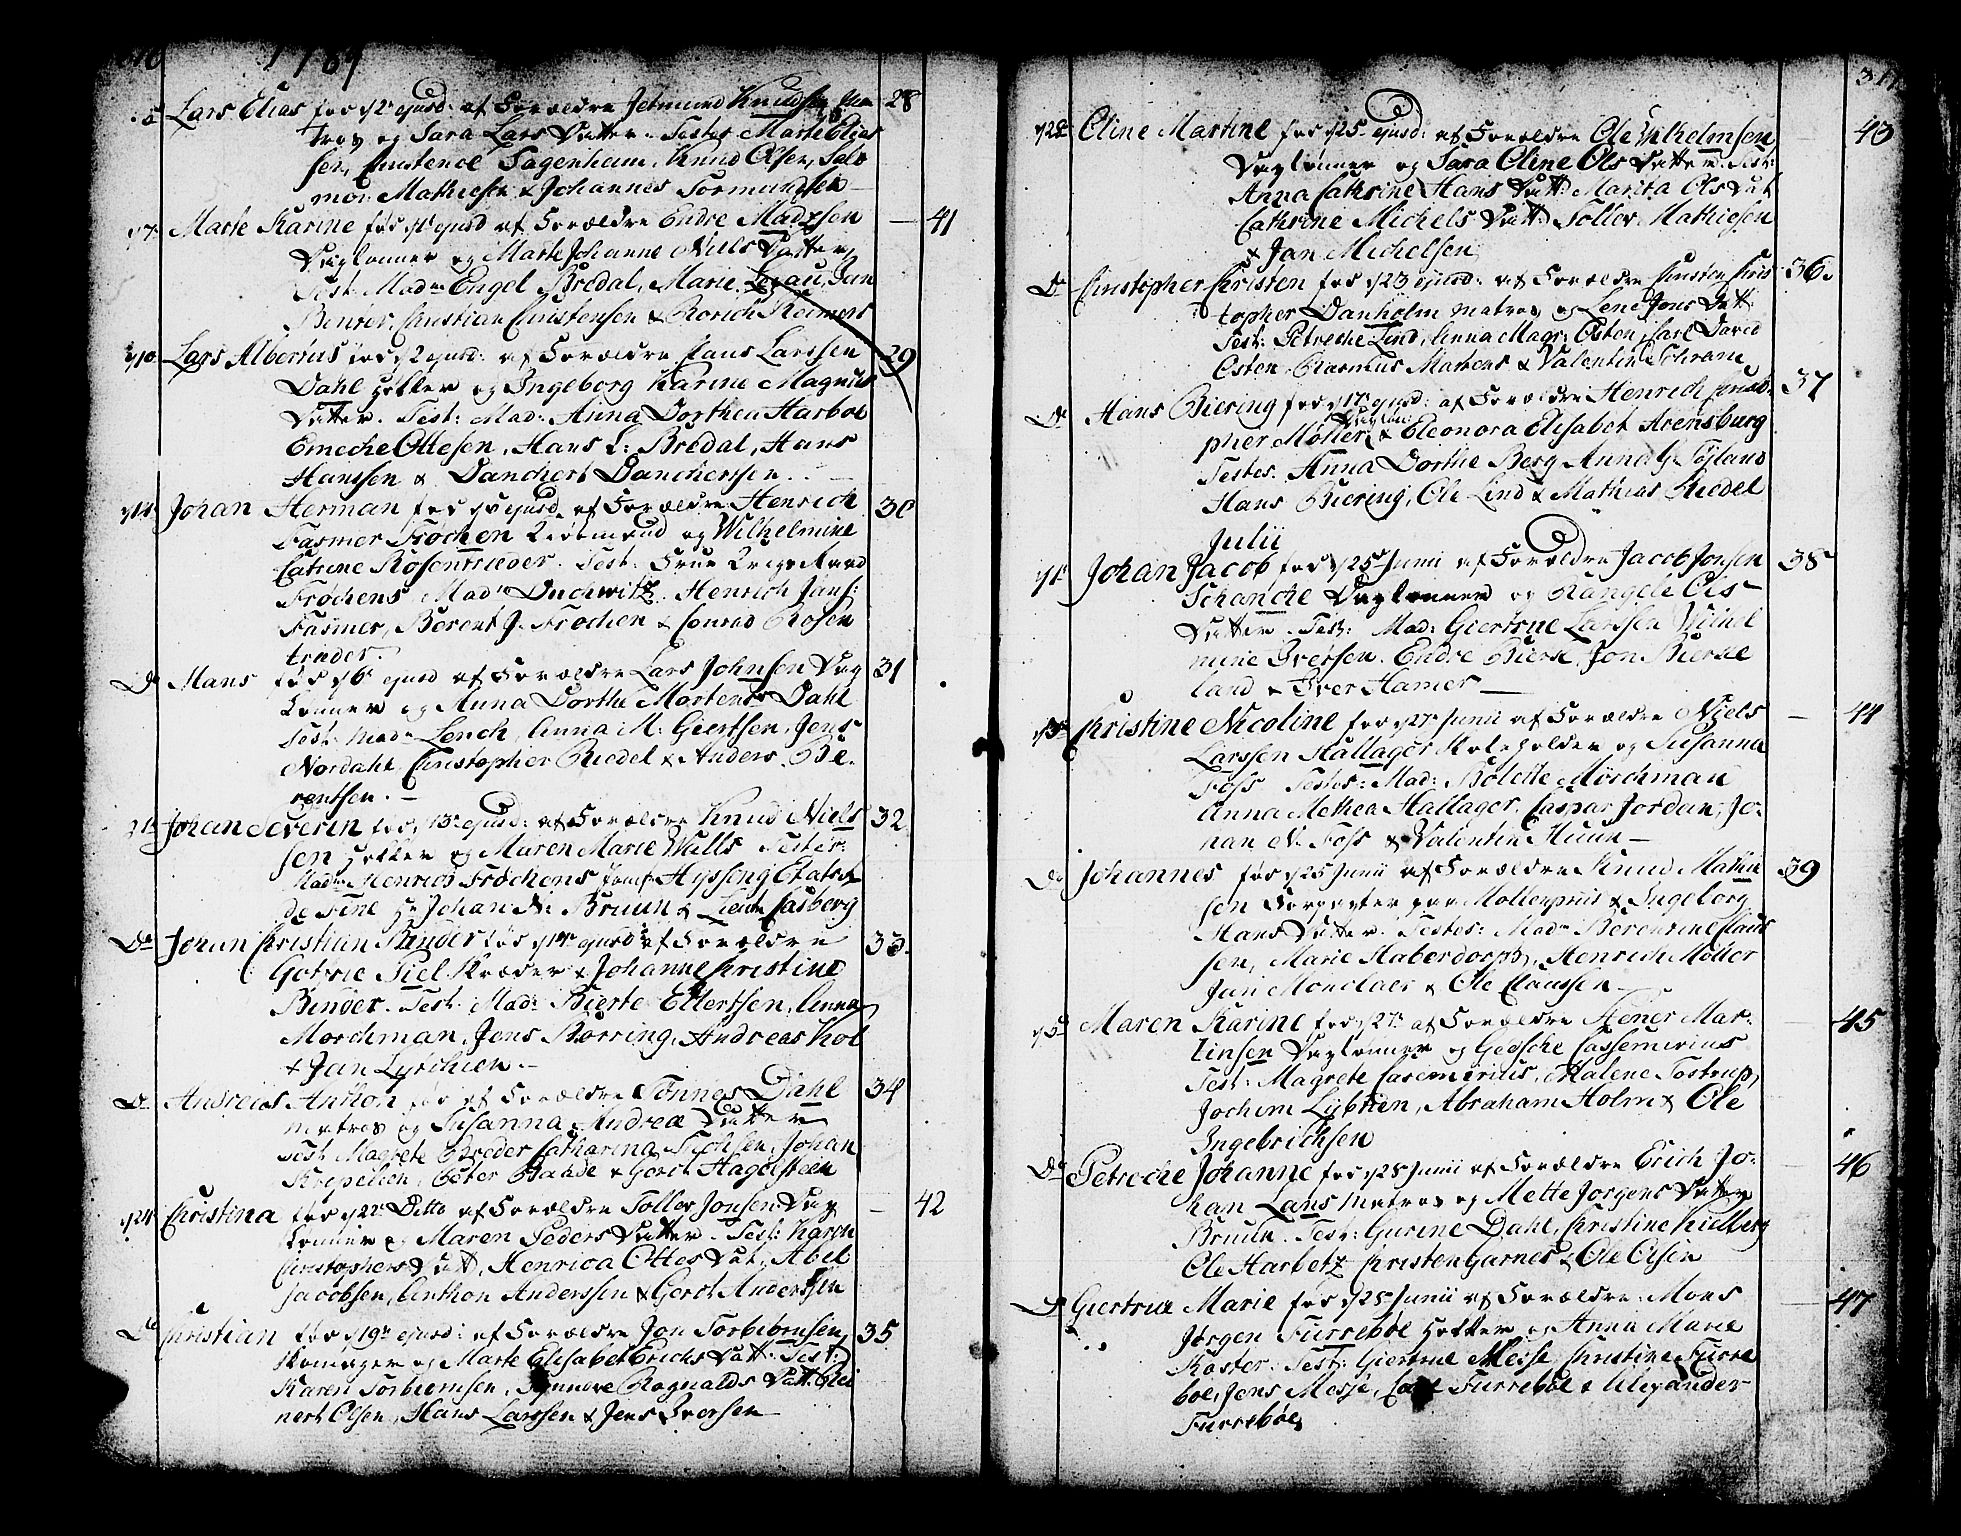 1769
Lars Elias fød d 2 ejusd: af Forældre Jetmund Knudsen Ma 28
tros og Sara Lars Datter. Testes Marte Elias
sen, Constence Sagenheim, Knud Olsen, Salo
mon Mathiesen & Johannes Sormundsen
d 7 Marte Karine fød ejusd af Forældre Endre Madssen — 41
Daglønner og Marte Johanne Niels Datter
Test: Mad: Engel Bredal, Marie Legau, Jan
Benter, Christian Christensen & Rorich Reimers
d 10 Lars Albertus fød d 2 ejusd: af Forældre Claus Larssen 29
Dahl Hotker og Ingeborg Karine Magnus
Datter. Test: Mad: Anna Dorthea Harboe
Emeche Ottesen, Hans L: Bredal, Hans
Hanssen & Danchert Danchertsen
d 14 Johan Herman fød ejusd af Forældre Henrich 30
Fasmer Frochen Kiøbmand og Wilhelmine
Catrine Rosentrieder. Test: Frue Krigsraad
Frochens, Mad: Duchwitz, Henrich Jans:
Fasmer, Berent J. Frochen & Conrad Rosen
trieder.
Do Mans fød d 6 ejusd af Forældre Lars Johnsen Dag 31
lønner og Anna Dorthe Mortens Dahl
Test: Mad: Lench, Anna M: Giertsen, Jens
Nordahl, Christopher Riedel & Anders Be
rentsen.
21 Johan Severin fød d 13 ejusd: af Forældre Knud Niels 32
sen Hotker og Maren Marie Wells Testes:
Mad: Henrics Frochens Jomf Hysseng Etats R
de Fine Hr Johan N: Bruun & Lieut: Casberg
Do Johan Christian Binder fød d 14 ejusd af Forældre 33.
Gotfrie Tiel Skræder & Johanne Christine
Binder. Test: Mad: Bierte Ellertsen, Anna
Morchman, Jens Rorring, Andreas Kol
& Jan Lyrichien.
Do Andreas Anthon fød af Forældre Tonnes Dahl 34
matros og Susanna Andrea Datter
Test Magrete Broder Catharina Tuchsen, Johan
Krepelien, Peter Baade & Gerct Hagelsteen
d 24 Christina fød d 22 Ditto af Forældre Toller Jonsen Dag — 42
lønner og Maren Peders Datter. Test: Karen
Christophers Datt, Henrica Ottes Dat, Abel
Jacobsen, Anthon Anderssen & Gerct Anderssen
Do Christian fød d 19 ejusd: af Forældre Jon Torbiørnsen 35
Skomager og Marte Elisabet Erichs Datt: Test:
Karen Torbiernsen, Synneve Ragnalds Datt: Rei
nert Olsen, Hans Larssen & Jens Iversen
311
d 28 Oline Martine fød d 25 ejusd: af Forældre Ole Wilhelmsen 43
Daglønner og Sara Oline Ols Datter Test:
Anna Cathrine Hans Datt: Marita Ols Dat
Cathrine Michels Datt: Toller Mathiesen
& Jan Michelsen
Do Christopher Christen fød d 23 ejusd: af Forældre Christen Chris 36.
topher Danholm matros og Lene Jons Datt:
Test: Petreche Lind, Anna Magr: Osten, Carl David
Osten, Rasmus Martens & Valentin Schram
Do Hans Biering fød d 17 ejusd: af Forældre Henrich Christo 37
pher Møller & Eleonora Elisabet Arensburg
Testes: Anna Dorthe Berg Anna G: Tøjland
Hans Biering, Ole Lind & Mathias Riedel
Julii
d 1 Johan Jacob fød d 25 Junii af Forældre Jacob Jonsen 38
Schanche Daglønner og Rangele Ols
Datter. Test: Mad: Giertrue Larssen
mine Iversen. Endre Bierk, Jon Bierke
land & Iver Hamer
d 5 Christine Nicoline fød d 27 Junii af Forældre Niels — 44
Larssen Hallager Skoleholder og Susanna
Foss Testes: Mad: Bolette Mørchman
Anna Methea Hallager, Caspar Jordan, Jo:
han N. Foss & Valentin Huun
Do Johannes fød d 25 Junii af Forældre Knud Matthi 39
sen Forpagter paa Møllenpriis & Ingeborg
Hans Datter. Testes: Mad: Berentine Claus
sen, Marie Haberdorph, Henrich Møller
Jan Monclaer & Ole Claussen
d 5 Maren Karine fød d 27 af Forældre Stener Mar: — 45
tinsen Daglønner og Gedsche Cassemirius
Test: Magrete Casemirius, Malene Tostrup,
Jochim Lybtien, Abraham Holm & Ole
Ingebrichsen
Do Petreche Johanne fød d 28 Junii af Forældre Erich Jo: — 46
han Lans Matros og Mette Jorgens Datter
Bruun. Test: Gurine Dahl, Christine Kielberg
Ole Harbetz Christen Garnes & Ole Olsen
Do Giertrue Marie fød d 25 Junii af Forældre: Mons — 47
Jørgen Furreboe Hotker og Anna Marie
Koster. Test: Giertrue Messe, Christine Furre
boe, Jens Messe, Furreboe & Alexander
Furrebøe